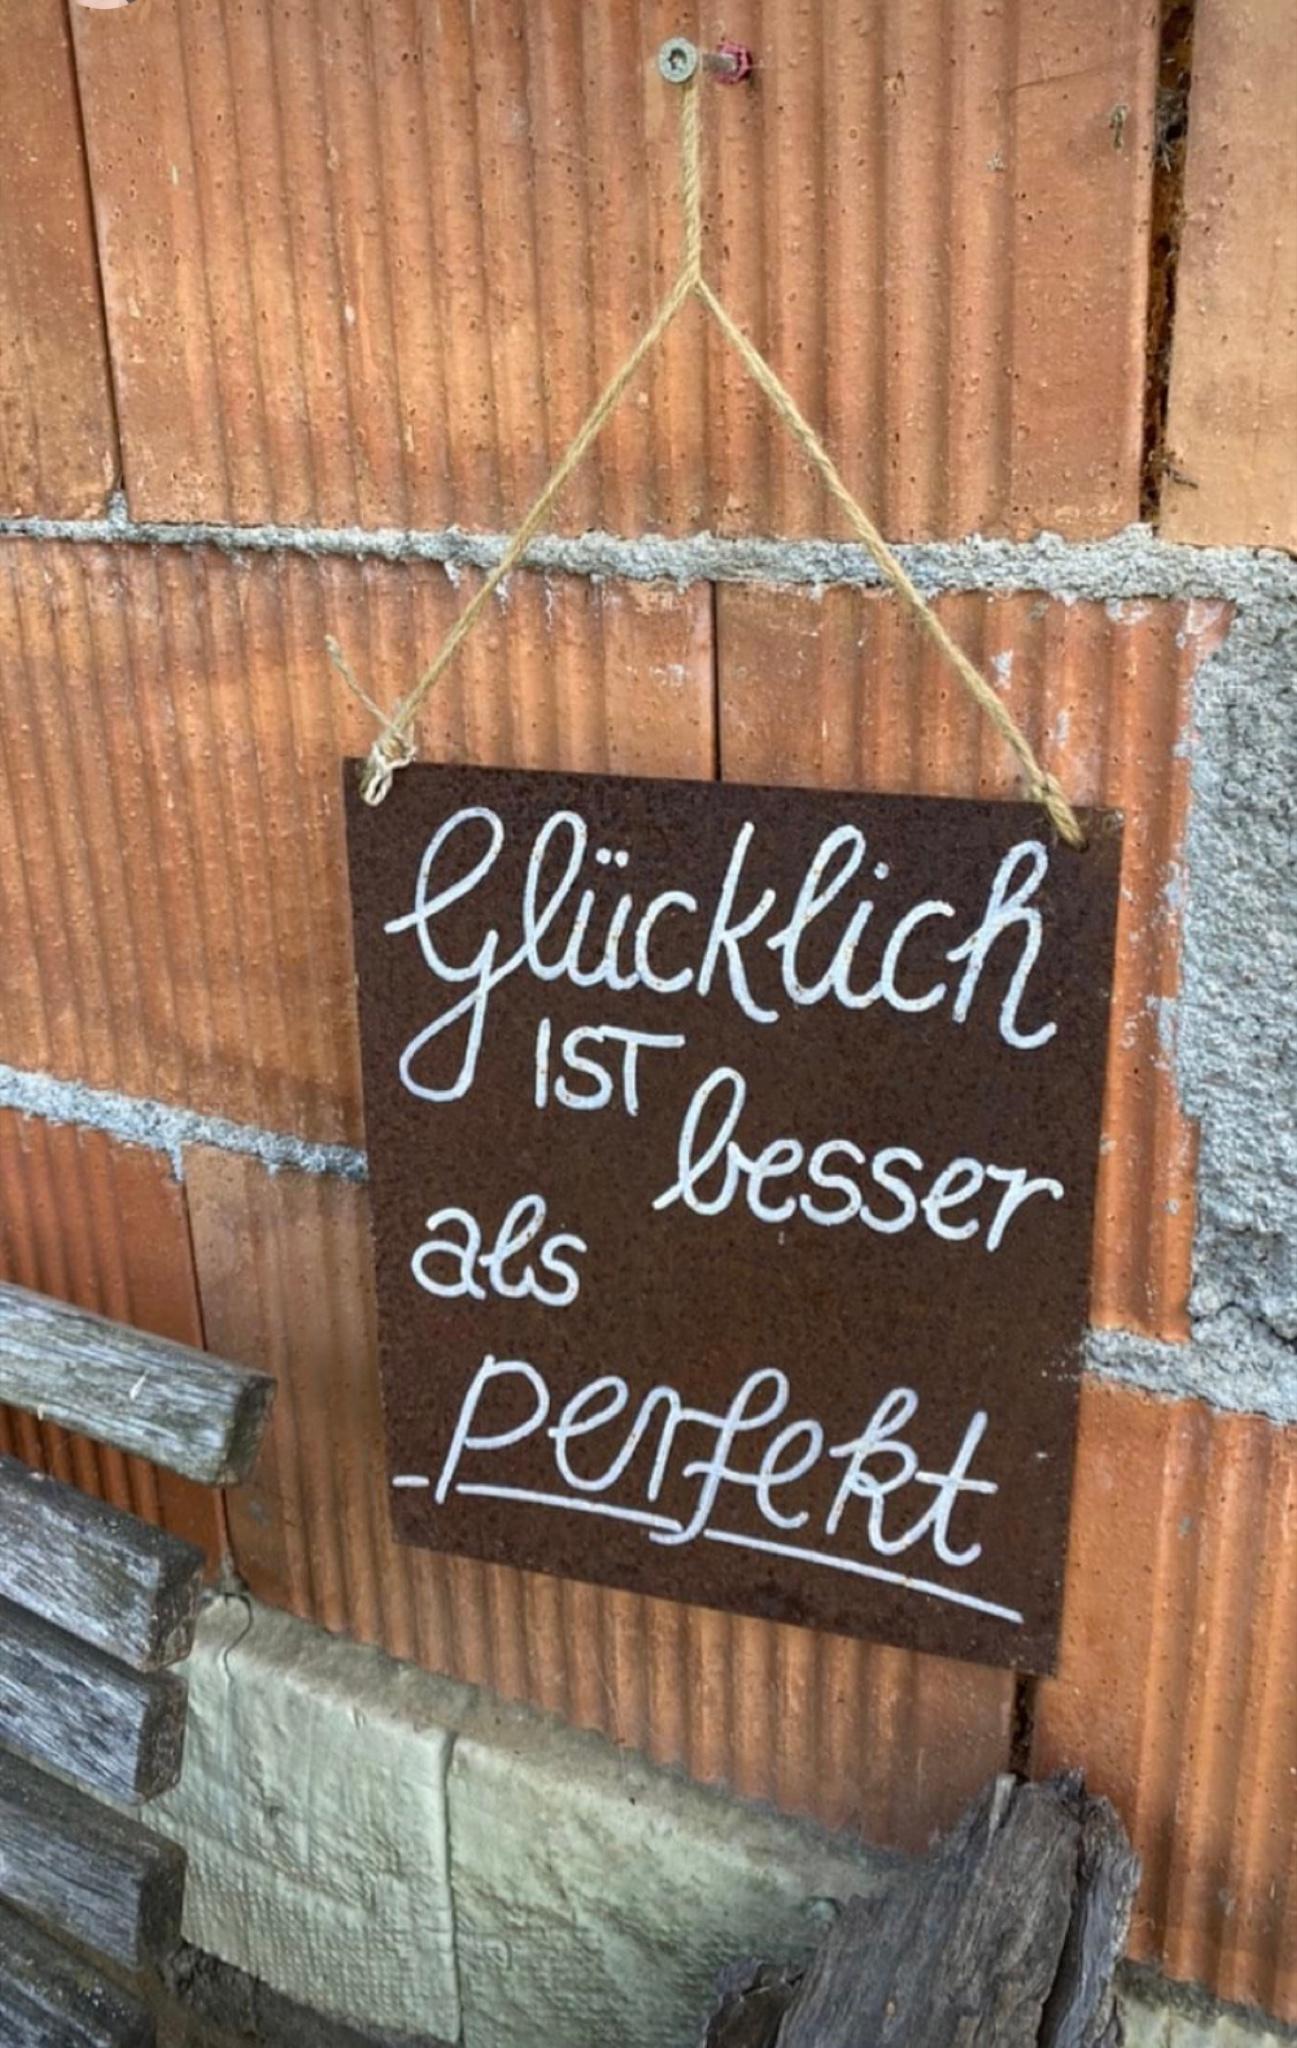 Glücklich
IST
besser
als
perfekt